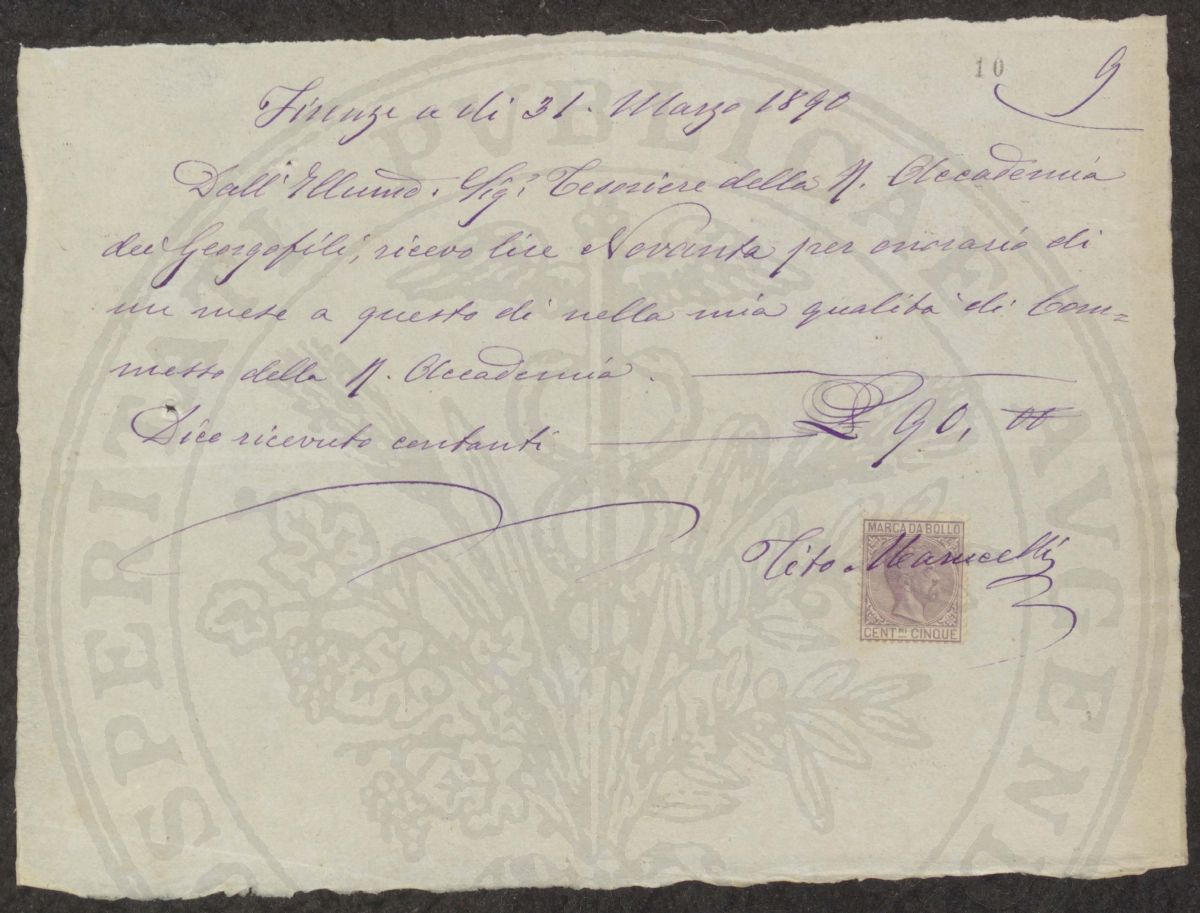 10 9
Firenze a dì 31. Marzo 1890
Dall' Illumo. Sigr. Tesoriere della R. Accademia
dei Georgofili, ricevo lire Novanta per onorario di
un mese a questo dì nella mia qualità di Com=
messo della R. Accademia.
Dico ricevuto contanti £ 90, 00
MARCA DA BOLLO
Tito Marucelli
CENT.MI CINQUE
PROSPERITATI PVBLICAE AVGENDAE